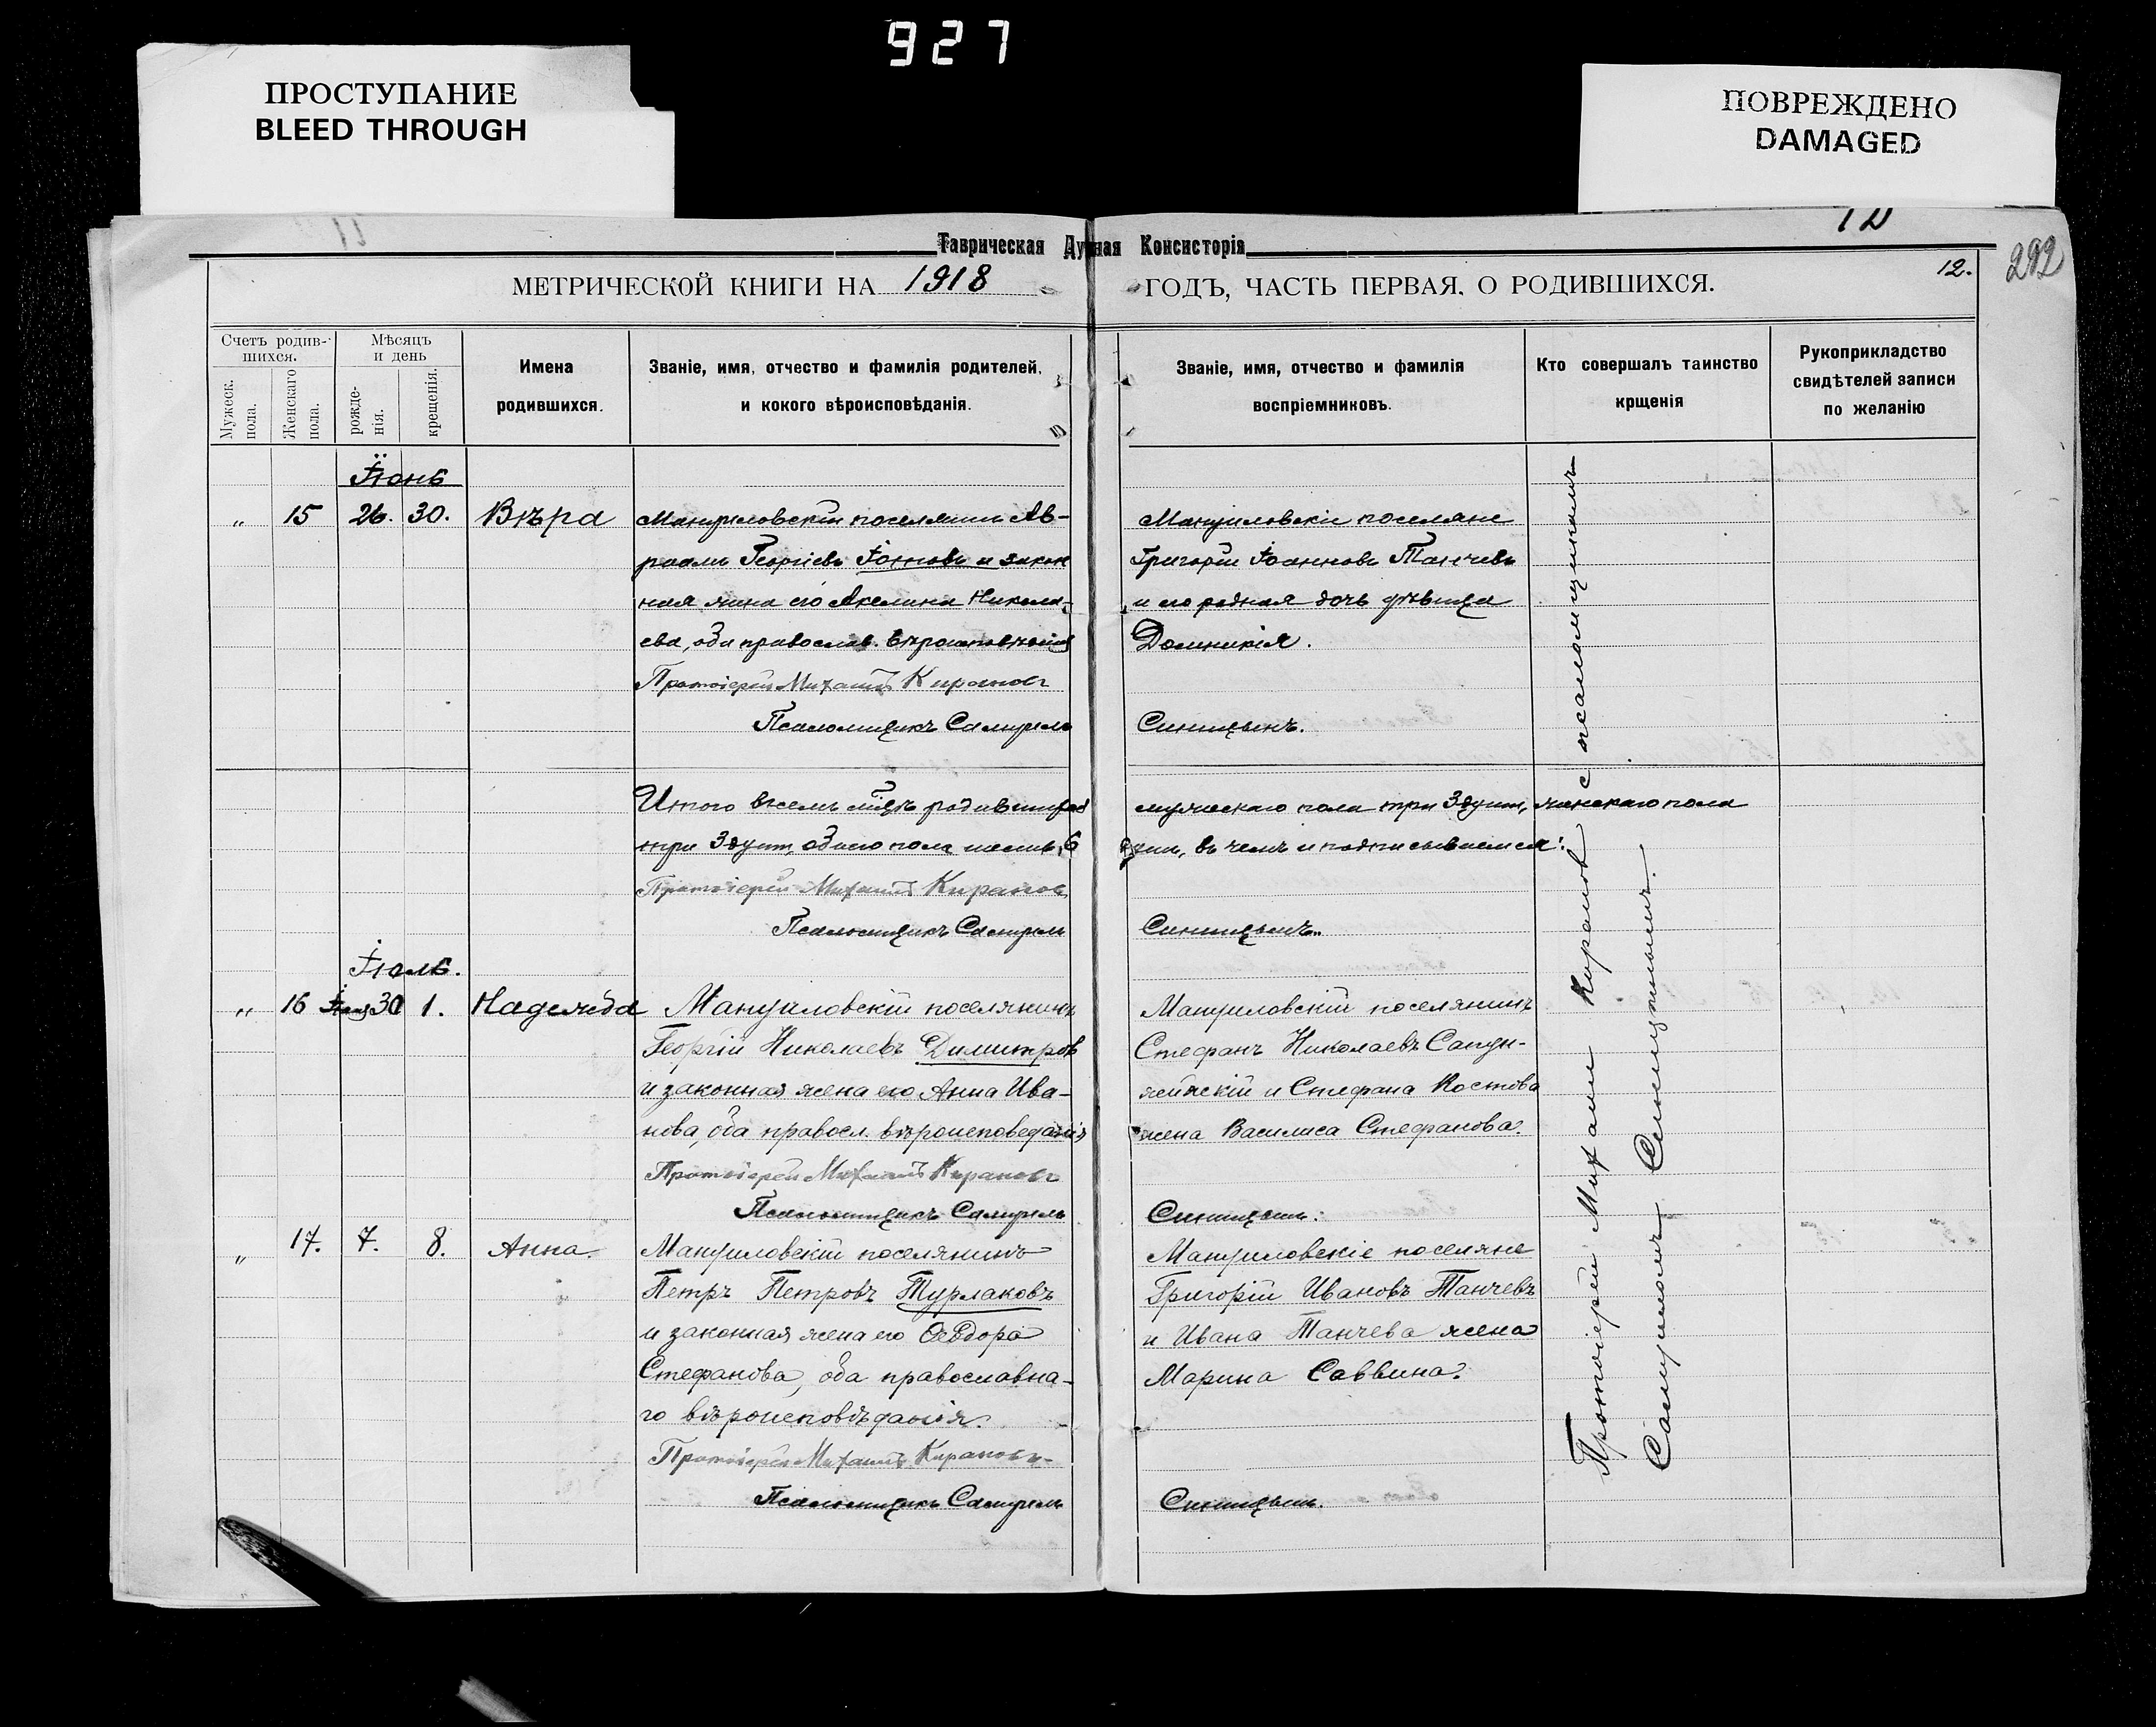 927
ПРОСТУПАНИЕ
BLEED THROUGH
ПОВРЕЖДЕНО
DAMAGED
12
Таврическая Духная Консисторія
292
МЕТРИЧЕСКОЙ КНИГИ НА 1918 ГОДЪ, ЧАСТЬ ПЕРВАЯ, О РОДИВШИХСЯ.
12.
Счетъ родив-
шихся.
Мужеск.
пола.
Женскаго
пола.
Мѣсяцъ
и день
рожде-
нія.
крещенія.
Имена
родившихся.
Званіе, имя, отчество и фамилія родителей,
и кокого вѣроисповѣданія.
Званіе, имя, отчество и фамилія
воспріемниковъ.
Кто совершалъ таинство
крщенія
Рукоприкладство
свидѣтелей записи
по желанію
Іюнь
„ 15 26. 30. Вѣра
Мануиловскій поселянинъ Ав-
раамъ Георгіевъ и закон
ная жена его Акелина Никола-
ева, оба православ. вѣроисповѣданія
Протоіерей Михаилъ Кирановъ
Псаломщикъ Самуилъ
Мануиловскіе поселяне
Григорій Іоанновъ Танчевъ
и его родная дочь дѣвица
Домникія.
Синицынъ.
Итого всемъ родившихся мужескаго пола три 3 души, женскаго пола
три 3 души, обоего пола шесть 6 душъ, въ чемъ и подписываемся:
Протоіерей Михаилъ Кирановъ
Псаломщикъ Самуилъ Синицынъ.
Іюль.
„ 16 Іюня 30 1. Надежда
Мануиловскій поселянинъ
Георгій Николаевъ Димитровъ
и законная жена его Анна Ива-
нова, оба правосл. вѣроисповеданія
Протоіерей Михаилъ Кирановъ
Псаломщикъ Самуилъ
Мануиловскій поселянинъ
Стефанъ Николаевъ
и Стефана Костова
жена Василиса Стефанова.
Синицынъ.
„ 17. 7. 8. Анна.
Мануиловскій поселянинъ
Петръ Петровъ Турлаковъ
и законная жена его Ѳеодора
Стефанова, оба православна-
го вѣроисповѣданія.
Протоіерей Михаилъ Кирановъ
Псаломщикъ Самуилъ
Мануиловскіе поселяне
Григорій Ивановъ Танчевъ
и Ивана Танчева жена
Марина Саввина.
Синицынъ.
Протоіерей Михаилъ Кирановъ с псаломщикомъ
Самуиломъ Синицынымъ.